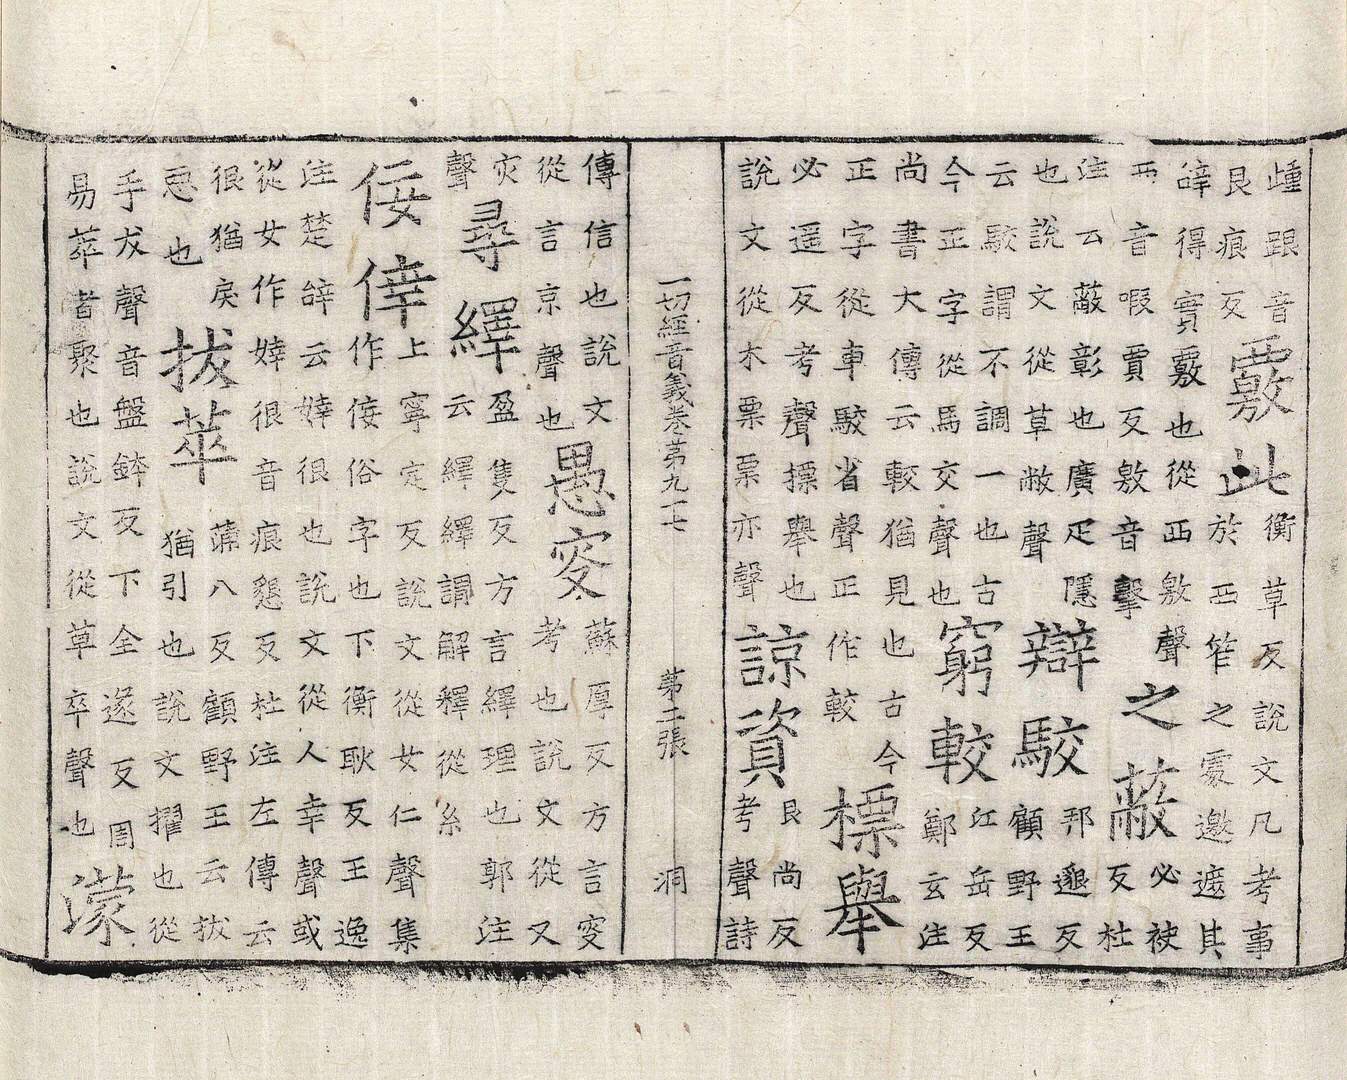 踵跟音
艮痕反
覈此
衡草反說文凡考事
於襾笮之覂邀遮其
辭得實覈也從襾敫聲
襾音嘏賈反敫音擊
之蔽
必袂
反杜
注云蔽彰也廣疋隱
也說文從草敝聲
辯駮
邦邈反
顧野王
云駮謂不調一也古
今正字從馬交聲也
窮較
江岳反
鄭玄注
尚書大傳云較猶見也古今
正字從車駮省聲正作較
標舉
必遥反考聲摽舉也
說文從木票票亦聲
諒資
良尚反
考聲詩
一切經音義卷苐九十七 苐二張 洞
傳信也說文
從言京聲也
愚叜
蘇厚反方言叜
考也說文從又
灾
聲
尋繹
盈隻反方言繹理也郭注
云繹繹謂解釋從糸
佞倖
上寧定反說文從女仁聲集
作侫俗字也下衡耿反王逸
注楚辝云婞很也說文從人幸聲或
從女作婞很音痕懇反杜注左傳云
很猶戾
惡也
拔萃
蒲八反顧野王云拔
猶引也說文擢也從
手犮聲音盤鉢反下全遂反周
易萃者聚也說文從草卒聲也
濛